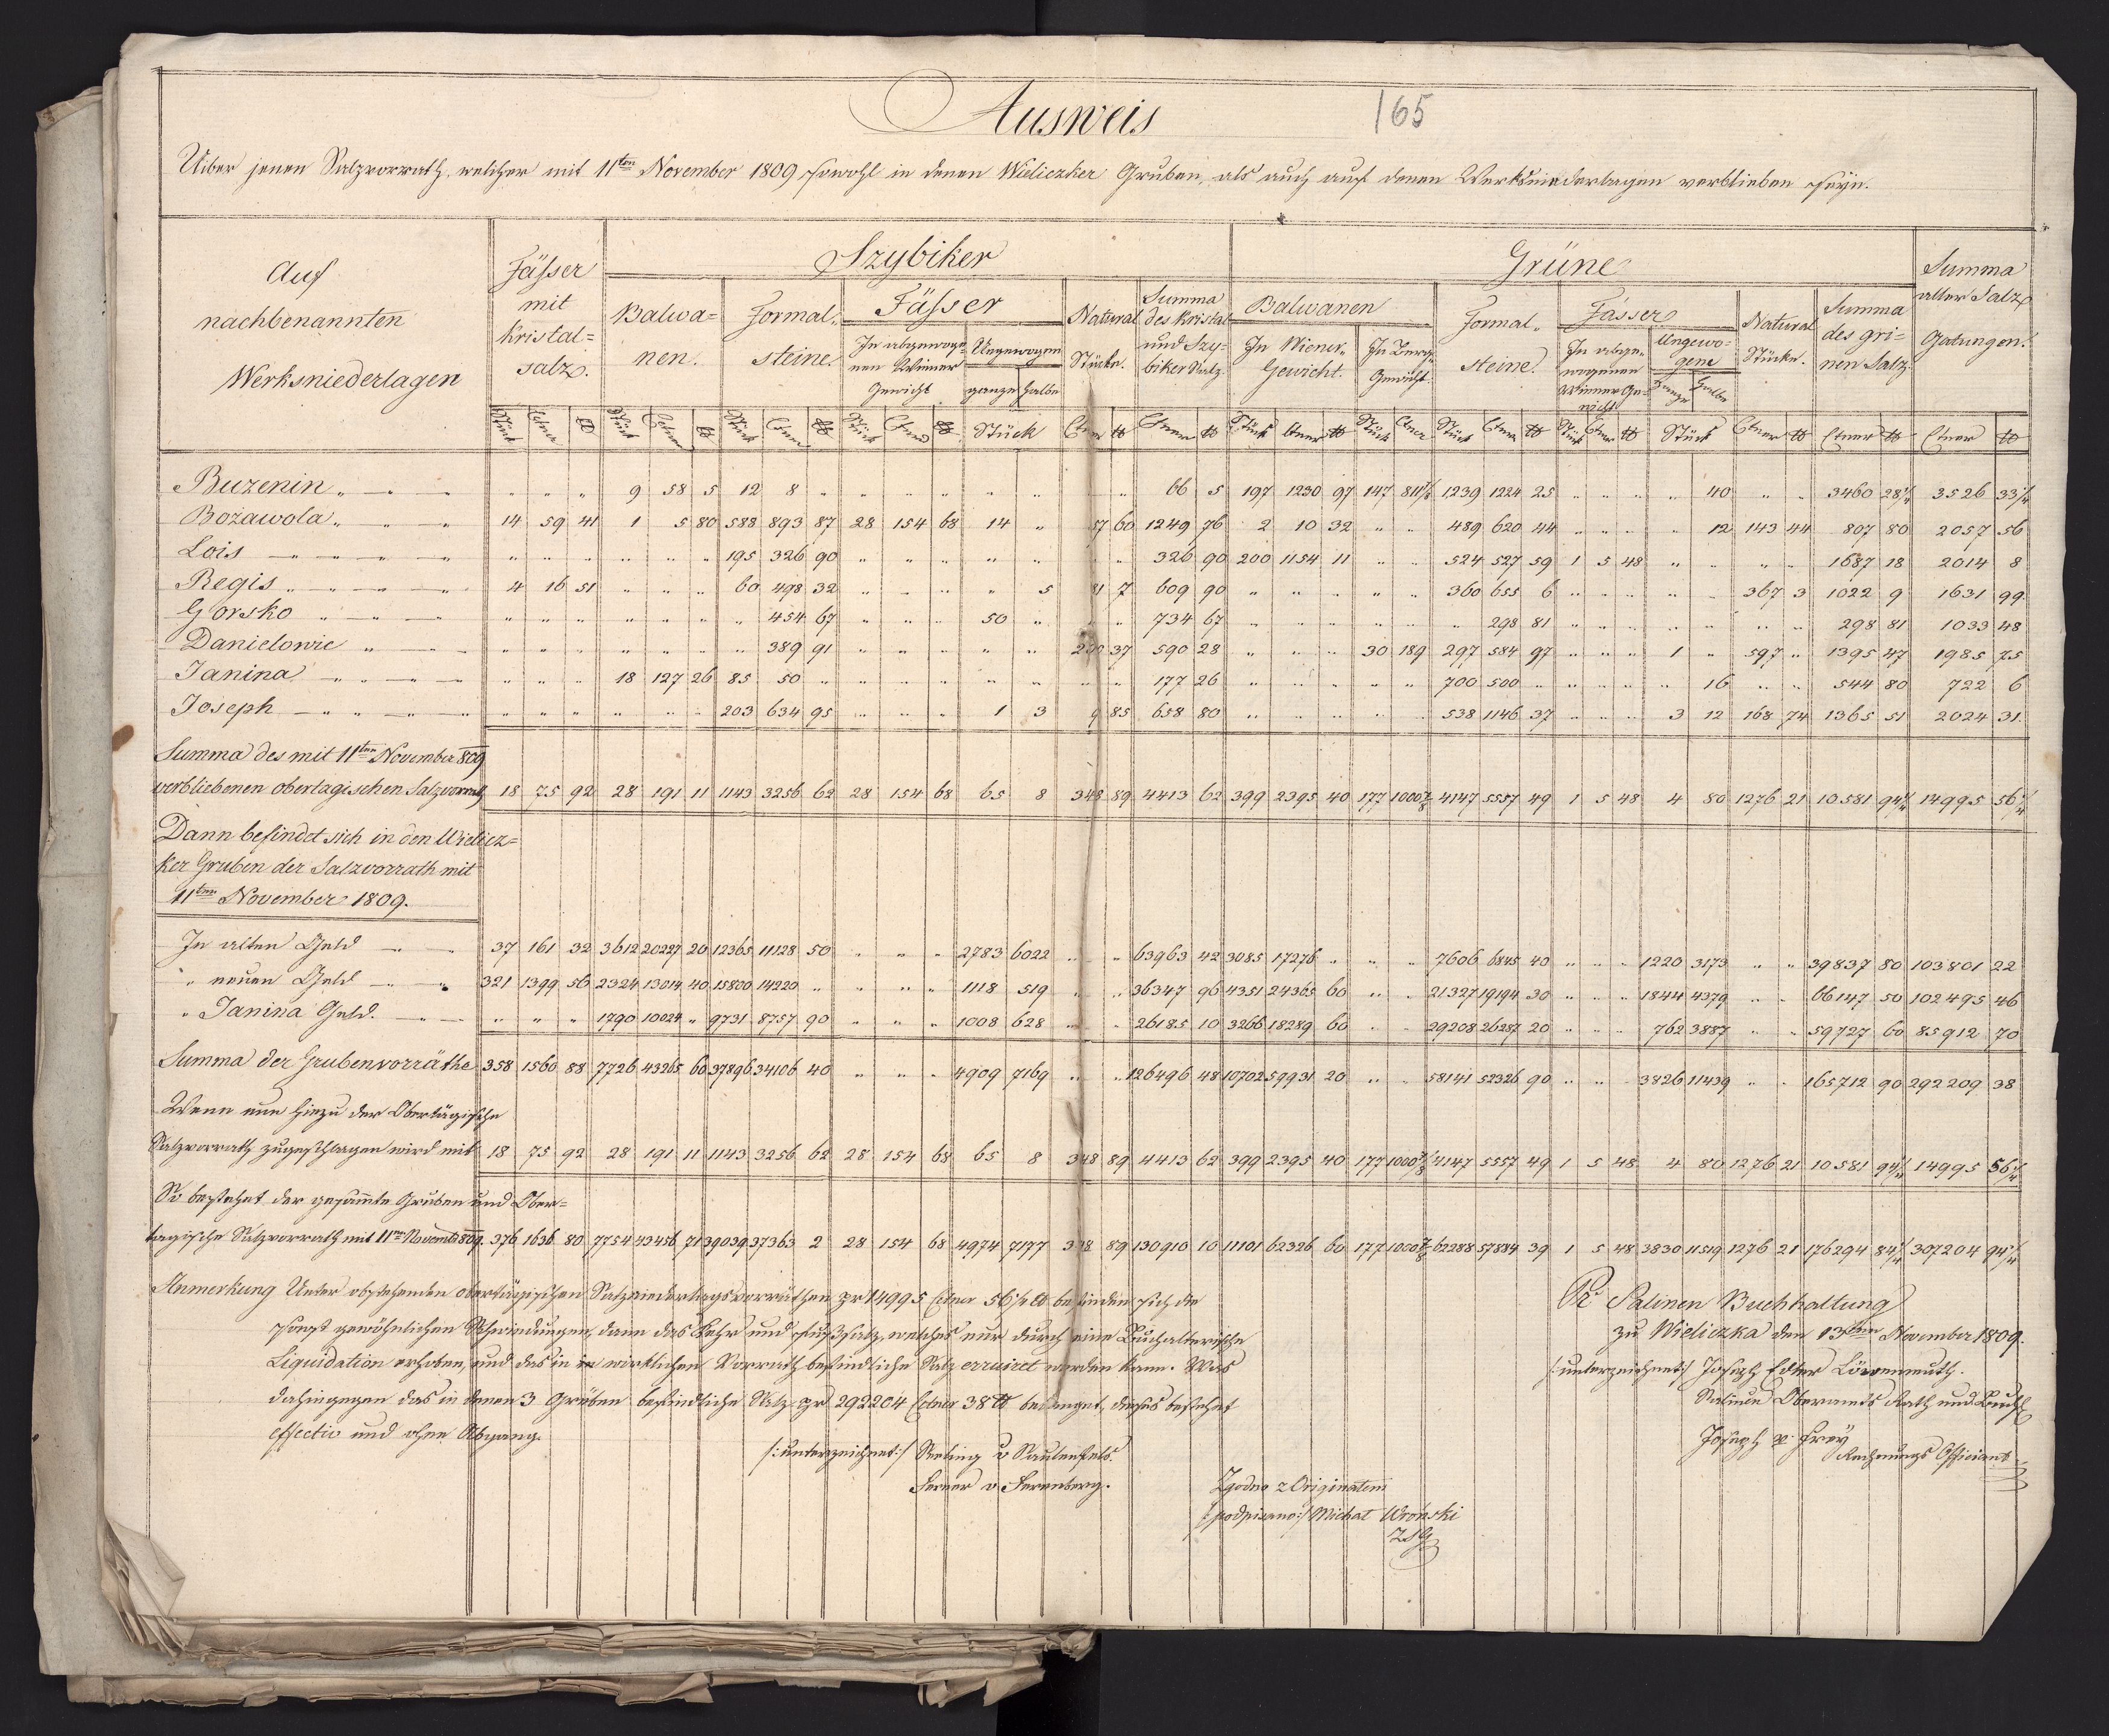 Ausweis
165
Uiber jenen Salzvorrath, welcher mit 11ten November 1809 sowohl in denen Wieliczker Gruben, als auch auf denen Werksniederlagen verblieben seyn.
Auf nachbenannten Werksniederlagen
Fässer mit kristal=salz.
Szybiker
Balwa=nen.
Formal. steine.
Fässer
In abgewoge=nen Wiener Gewicht
Ungewogen
ganze halbe
Natural Stücke.
Summa des kristal und Szy=biker Salz
Grüne
Balwanen
In Wiener Gewicht.
In Berg Gewicht.
Formal. steine.
Fässer
In abge=wogenen Wiener Ge=wicht
Ungewo=gene
Ganze Halbe
Natural Stücke.
Summa des grü=nen Salz.
Summa aller Salz Gatungen.
Buzenin 9 58 5 12 8 66 5 197 1230 97 147 811 7/8 1239 1224 25 40 3460 28 1/4 3526 33 1/4
Bozawola 14 59 41 1 5 80 588 893 87 28 154 68 14 57 60 1249 76 2 10 32 489 620 44 12 143 44 807 80 2057 56
Lois 195 326 90 326 90 200 1154 11 524 527 59 1 5 48 1687 18 2014 8
Regis 4 16 51 60 498 32 5 81 7 609 90 360 655 6 367 3 1022 9 1631 99
Gorsko 454 67 50 734 67 298 81 298 81 1033 48
Danielowic 389 91 37 590 28 30 189 297 584 97 1 597 1395 47 1985 75
Janina 18 127 26 85 50 177 26 700 500 16 544 80 722 6
Joseph 203 634 95 1 3 9 85 658 80 538 1146 37 3 12 168 74 1365 51 2024 31
Summa des mit 11ten November 809
verbliebenen obertagischen Salzvorrath 18 75 92 28 191 11 1143 3256 62 28 154 68 65 8 348 89 4413 62 399 2395 40 177 1000 7/8 4147 5557 49 1 5 48 4 80 1276 21 10581 94 1/4 14995 56 1/4
Dann befindet sich in den Wielicz=
ker Gruben der Salzvorrath mit
11ten November 1809.
In alten Feld 37 161 32 3612 20227 20 12365 11128 50 2783 6022 63963 42 3085 17276 7606 6845 40 1220 3173 39837 80 103801 22
" neuen Feld 321 1399 56 2324 13014 40 15800 14220 1118 519 36347 96 4351 24365 60 21327 19194 30 1844 4379 66147 50 102495 46
" Janina Feld. 1790 10024 9731 8757 90 1008 628 26185 10 3266 18289 60 29208 26287 20 762 3887 59727 60 85912 70
Summa der Grubenvorräthe 358 1560 88 7726 43265 60 37896 34106 40 4909 7169 126496 48 10702 59931 20 58141 52326 90 3826 11439 165712 90 292209 38
Wenn nun hiezu der Obertägische
Salzvorrath zugeschlagen wird mit 18 75 92 28 191 11 1143 3256 62 28 154 68 65 8 348 89 4413 62 399 2395 40 177 1000 7/8 4147 5557 49 1 5 48 4 80 1276 21 10581 94 1/4 14995 56 1/4
So bestehet der gesammte Gruben und Ober=
tagische Salzvorrath mit 11ten Novemb 809. 376 1636 80 7754 43456 71 39039 37363 2 28 154 68 4974 7177 348 89 130910 10 11101 62326 60 177 1000 7/8 62288 57884 39 1 5 48 3830 11519 1276 21 176294 84 1/4 307204 94 1/4
Anmerkung Unter obstehenden obertägischen Salzniederlagsvorräthen pr 14995 Ctner 56 1/4 ℔ befinden sich die
sonst gewöhnlichen Schwindungen, dann das Kehr und Fuß Salz, welches nur durch eine Buchalterische
Liquidation erhoben, und das in in wirklichen Vorrath befindliche Salz erruiret werden kann. Was
dahingegen das in denen 3 Gruben befindliche Salz pr 292204 Ctner 38 ℔ belanget, dieses bestehet
effectiv und ohne Abgang.
/:unterzeichnet:/ Seeling v Saulenfels.
Lerner v Lerenberg.
Pr Salinen Buchhaltung
zu Wieliczka den 13ten November 1809.
/:unterzeichnet:/ Joseph Edler Löwenmuth.
Salinen Oberamts Rath und Buchh
Joseph v Frey
Rechnungs Officiant
Zgodno z Originałem
/:podpisano:/ Michał Wroński